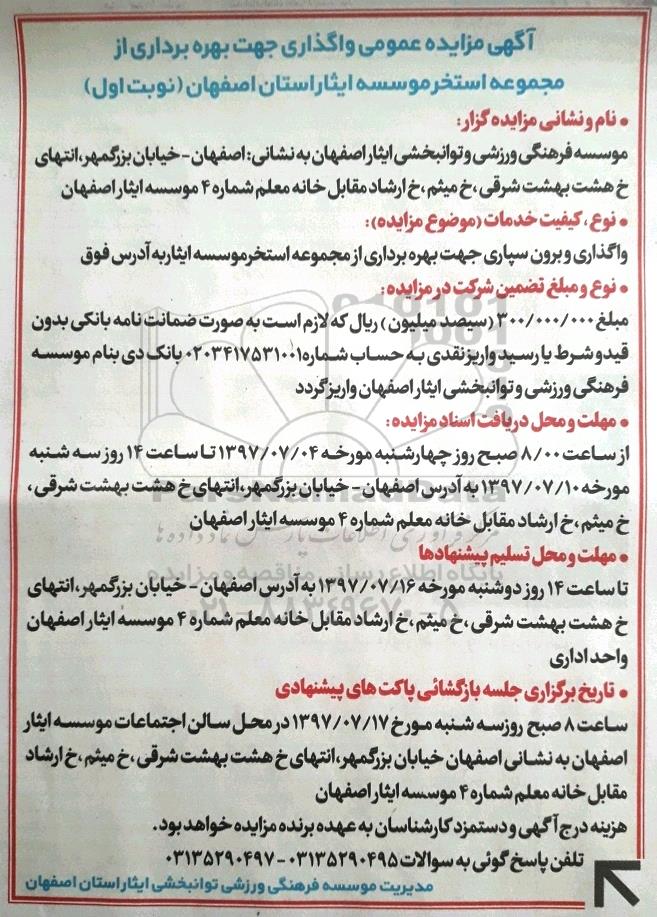 آگهی مزایده عمومی واگذاری جهت بهره برداری از
مجموعه استخر موسسه ایثار استان اصفهان (نوبت اول)
• نام و نشانی مزایده گزار:
موسسه فرهنگی ورزشی و توانبخشی ایثار اصفهان به نشانی: اصفهان - خیابان بزرگمهر، انتهای
خ هشت بهشت شرقی، خ میثم، خ ارشاد مقابل خانه معلم شماره ۴ موسسه ایثار اصفهان
• نوع، کیفیت خدمات (موضوع مزایده):
واگذاری و برون سپاری جهت بهره برداری از مجموعه استخر موسسه ایثار به آدرس فوق
• نوع و مبلغ تضمین شرکت در مزایده:
مبلغ ۳۰۰/۰۰۰/۰۰۰ (سیصد میلیون) ریال که لازم است به صورت ضمانت نامه بانکی بدون
قید و شرط یا رسید واریز نقدی به حساب شماره ۰۲۰۳۴۱۷۵۳۱۰۰۱ بانک دی بنام موسسه
فرهنگی ورزشی و توانبخشی ایثار اصفهان واریز گردد
• مهلت و محل دریافت اسناد مزایده:
از ساعت ۸/۰۰ صبح روز چهارشنبه مورخه ۱۳۹۷/۰۷/۰۴ تا ساعت ۱۴ روز سه شنبه
مورخه ۱۳۹۷/۰۷/۱۰ به آدرس اصفهان - خیابان بزرگمهر، انتهای خ هشت بهشت شرقی،
خ میثم، خ ارشاد مقابل خانه معلم شماره ۴ موسسه ایثار اصفهان
• مهلت و محل تسلیم پیشنهادها
تا ساعت ۱۴ روز دوشنبه مورخه ۱۳۹۷/۰۷/۱۶ به آدرس اصفهان - خیابان بزرگمهر، انتهای
خ هشت بهشت شرقی، خ میثم، خ ارشاد مقابل خانه معلم شماره ۴ موسسه ایثار اصفهان
واحد اداری
• تاریخ برگزاری جلسه بازگشائی پاکت های پیشنهادی
ساعت ۸ صبح روز سه شنبه مورخ ۱۳۹۷/۰۷/۱۷ در محل سالن اجتماعات موسسه ایثار
اصفهان به نشانی اصفهان خیابان بزرگمهر، انتهای خ هشت بهشت شرقی، خ میثم، خ ارشاد
مقابل خانه معلم شماره ۴ موسسه ایثار اصفهان
هزینه درج آگهی و دستمزد کارشناسان به عهده برنده مزایده خواهد بود.
تلفن پاسخ گوئی به سوالات ۰۳۱۳۵۲۹۰۴۹۵ - ۰۳۱۳۵۲۹۰۴۹۷
مدیریت موسسه فرهنگی ورزشی توانبخشی ایثار استان اصفهان